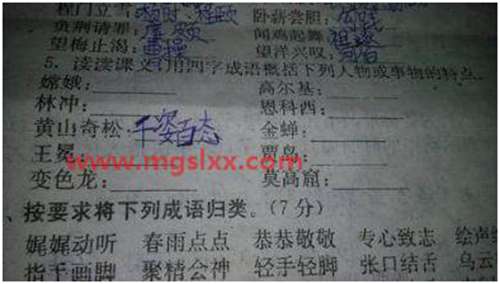 程门立雪：杨时 程颐 卧薪尝胆：勾践
负荆请罪：廉颇 闻鸡起舞：祖逖
望梅止渴：曹操 望洋兴叹：河伯
5. 读读课文,用四字成语概括下列人物或事物的特点。
嫦娥：________ 高尔基：________
林冲：________ 恩科西：________
黄山奇松：千姿百态 金蝉：________
王冕：________ 贾岛：________
www.mgslxx.com
变色龙：________ 莫高窟：________
、按要求将下列成语归类。(7分)
娓娓动听 春雨点点 恭恭敬敬 专心致志 绘声
指手画脚 聚精会神 轻手轻脚 张口结舌 乌云